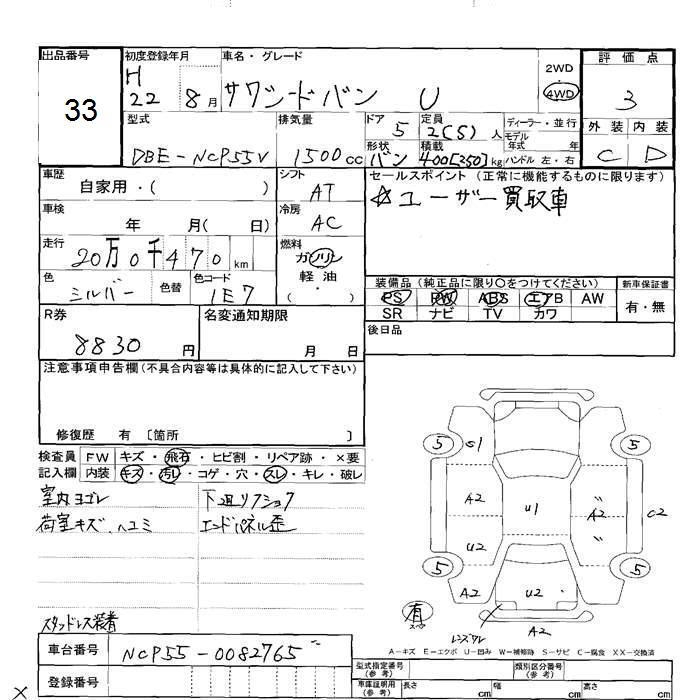 出品番号
33
初度登録年月
H
22 8月
車名・グレード
サクシードバン U
2WD
4WD
評価点
3
外装 内装
C D
型式
DBE-NCP55V
排気量
1500cc
ドア
5
定員
2(5)人
形状
バン
積載
400[250]kg
ディーラー・並行
モデル
年式 年
ハンドル 左・右
車歴
自家用・( )
シフト
AT
セールスポイント (正常に機能するものに限ります)
☆ユーザー買取車
車検
年 月( 日)
冷房
AC
走行
20万0千470km
燃料
ガソリン
軽油
( ・ )
色
シルバー
色替
色コード
1E7
装備品(純正品に限り○をつけてください)
PS PW ABS エアB AW
SR ナビ TV カワ
新車保証書
有・無
R券
8830円
名変通知期限
月 日
後日品
注意事項申告欄(不具合内容等は具体的に記入して下さい)
修復歴 有 〔箇所 〕
検査員
記入欄
FW キズ・飛石・ヒビ割・リペア跡・×要
内装 キズ・汚レ・コゲ・穴・スレ・キレ・破レ
室内ヨゴレ
荷室キズ、ヘコミ
下廻リクショク
エンドパネル歪
スタッドレス装着
5 S1 5
A2 U1 〃 A2 〃 C2
U2
5 5
A2 U2
有
スペア
レンズワレ
A2
A-キズ E-エクボ U-凹み W-補修跡 S-サビ C-腐食 XX-交換済
車台番号
NCP55-0082765
登録番号
型式指定番号
(参考)
類別区分番号
(参考)
車庫証明用
(参考)
長さ cm
幅 cm
高さ cm
×